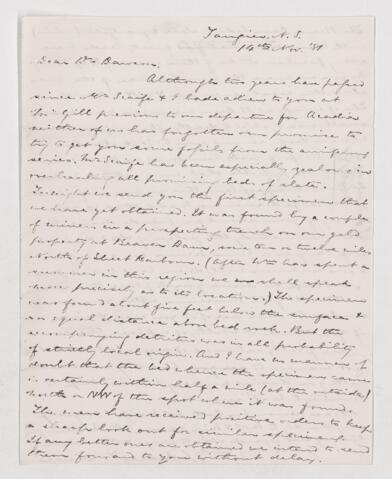 Tangier, N.S.
14th Nov. '81
Dear Dr Dawson,
Although two years have passed
since Mr Scaife & I bade adieu to you at
McGill previous to our departure for Acadia
neither of us has forgotten our promise to
try to get you some fossils from the auriferous
series. Mr Scaife has been especially zealous in
overhauling all promising beds of slate.
Tonight we send you the first specimen that
we have yet obtained. It was found by a couple
of miners in a prospecting trench on our gold
property at Beaver Dam, some ten or twelve miles
North of Sheet Harbour. (After has spent a
summer in this region we shall speak
more precisely as to its location.) The specimen
was found about five feet below the surface &
an equal distance above bed rock. But the
accompanying detritus was in all probability
of strictly local origin. And I have no manner of
doubt that the bed whence the specimen came
is certainly within half a mile (at the outside)
north or NW of the spot where it was found.
The men have received positive orders to keep
a sharp look out for similar specimens.
If any better ones are obtained we intend to send
them forward to you without delay.